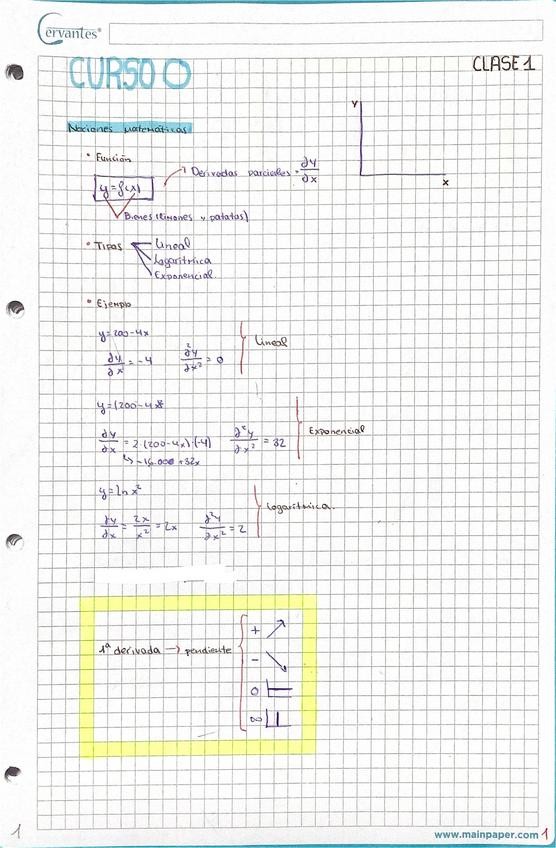 Cervantes®
CURSO 0
CLASE 1
Nociones matemáticas
• Función
Derivadas parciales = ∂y/∂x
y=f(x)
Bienes (limones y patatas)
• Tipos
Lineal
Logarítmica
Exponencial
• Ejemplo
y=200-4x
∂y/∂x = -4 ∂²y/∂x² = 0
Lineal
y=(200-4x)²
∂y/∂x = 2·(200-4x)·(-4) ∂²y/∂x² = 32
Exponencial
↳ -16.000 + 32x
y=ln x²
∂y/∂x = 2x/x² = 2x ∂²y/∂x² = 2
Logarítmica.
1ª derivada → pendiente
+
-
0
∞
y
x
1
www.mainpaper.com 1